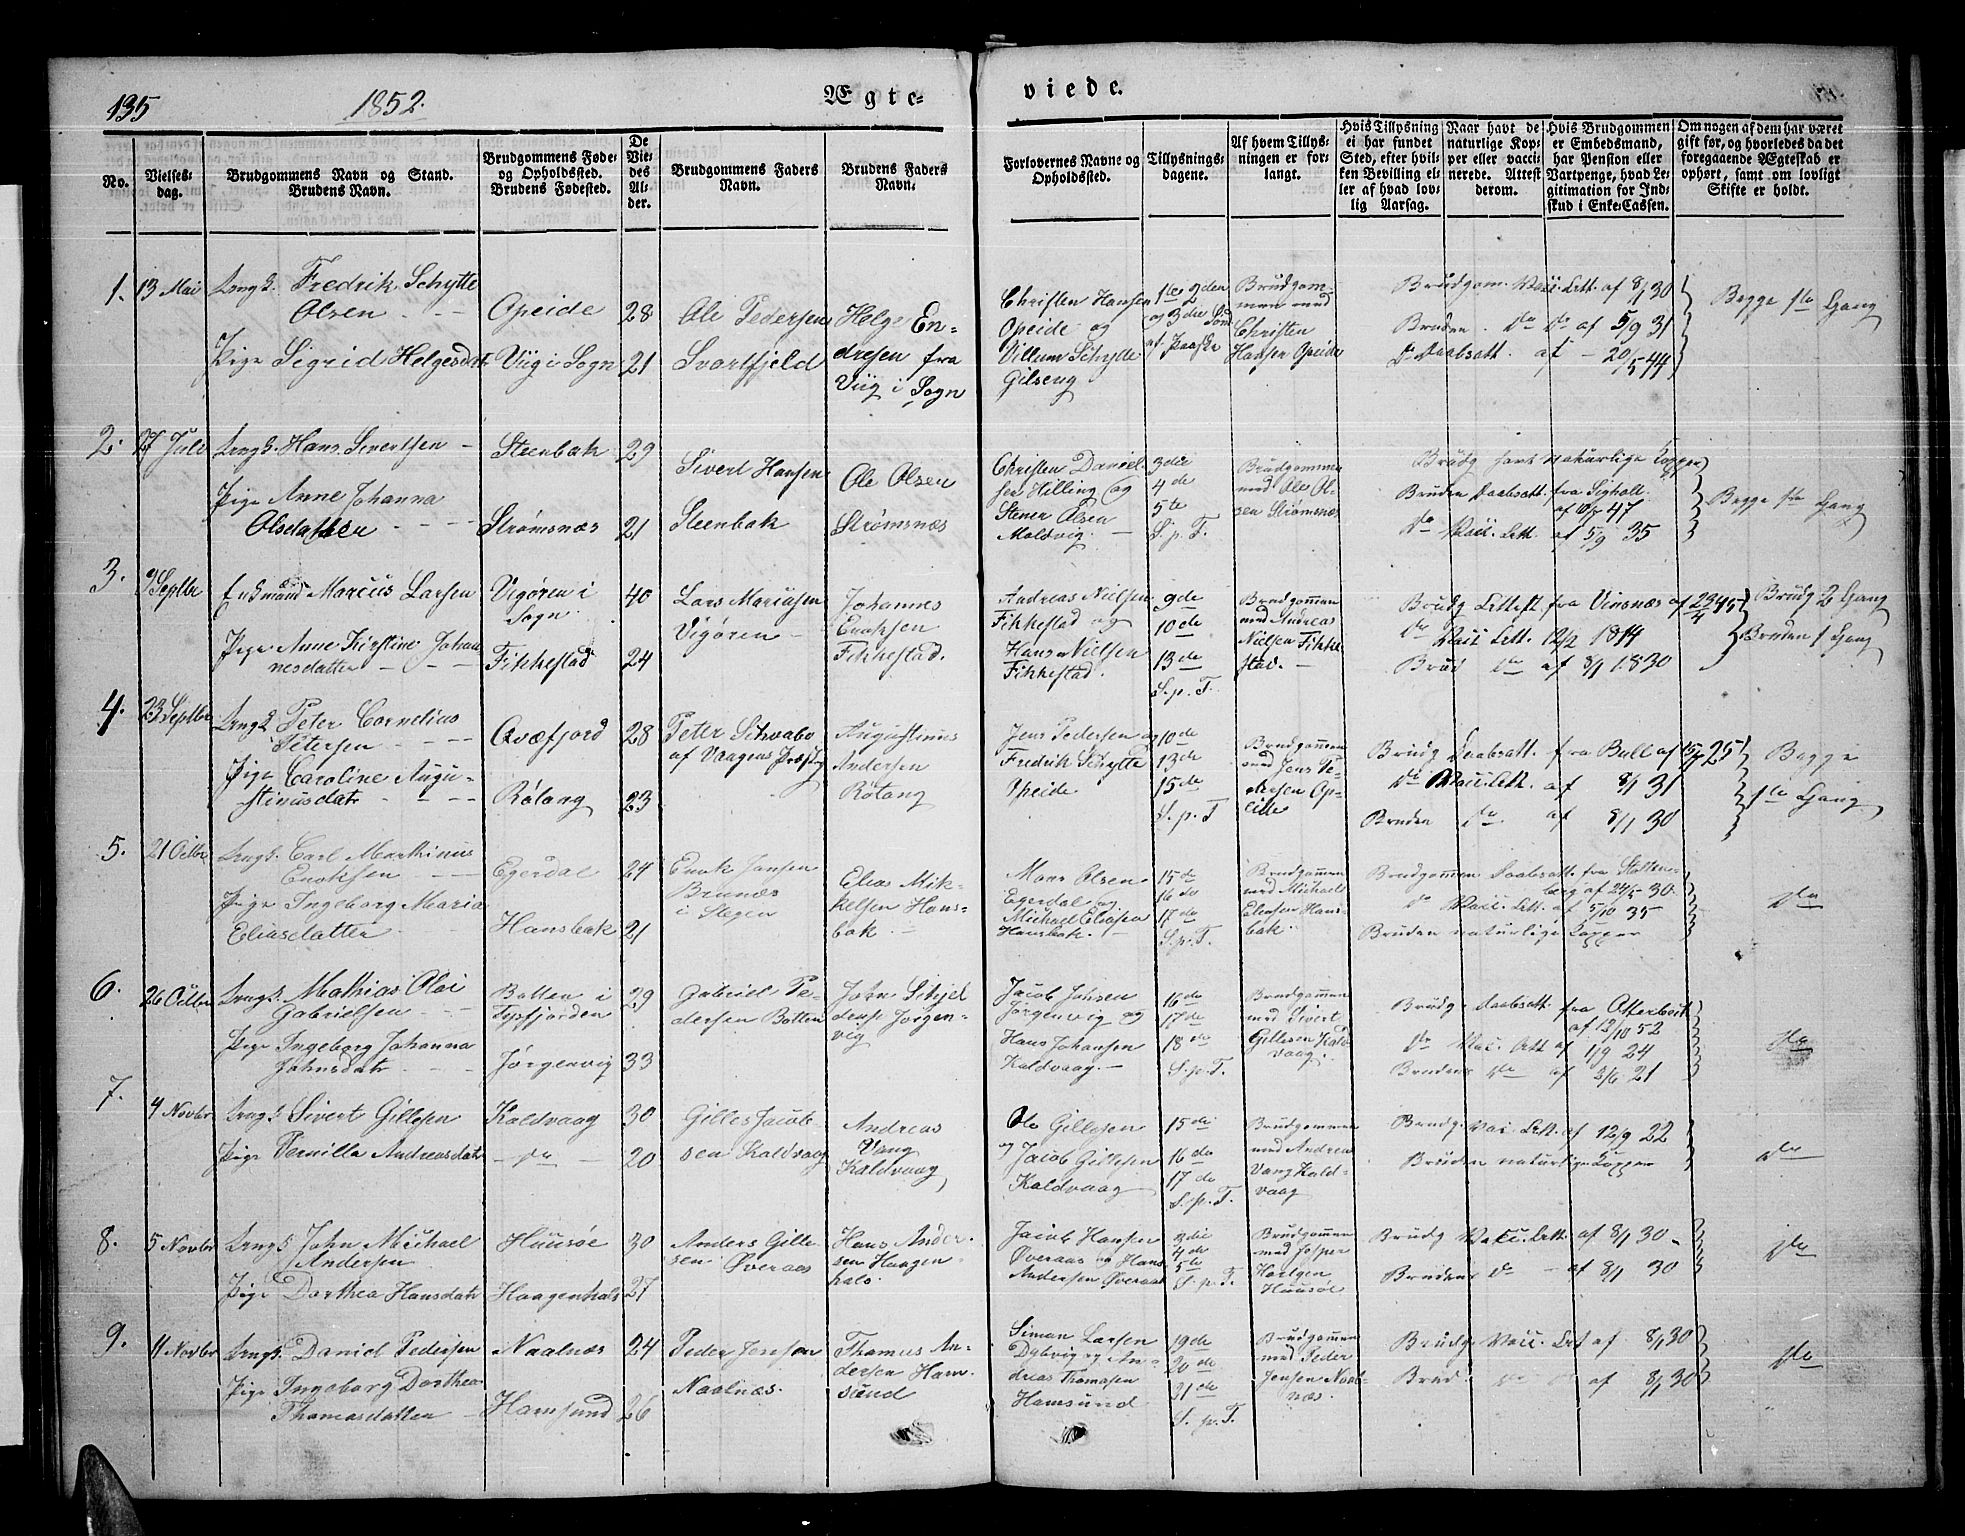 135
1852.
Ægte-
viede.
No.
Vielses-
dag.
Brudgommens Navn og Stand.
Brudens Navn.
Brudgommens Føde-
og Opholdssted.
Brudens Fødested.
De
Vie-
des
Al-
der.
Brudgommens Faders
Navn.
Brudens Faders
Navn.
Forlovernes Navne og
Opholdssted.
Tillysnings-
dagene.
Af hvem Tillys-
ningen er for-
langt.
Hvis Tillysning
ei har fundet
Sted, efter hvil-
ken Bevilling el-
ler af hvad lov-
lig Aarsag.
Naar havt de
naturlige Kop-
per eller vacci-
nerede. Attest
derom.
Hvis Brudgommen
er Embedsmand,
har Pension eller
Vartpenge, hvad Le-
gitimation for Ind-
skud i Enke-Cassen.
Om nogen af dem har været
gift før, og hvorledes da det
foregaaende Ægteskab er
ophørt, samt om lovligt
Skifte er holdt.
1.
13 Mai
Ungk. Fredrik Schytte
Olsen
Pige Sigrid Helgesdatr
Opeide
Viig i Sogn
28
21
Ole Pedersen
Svartfjeld
Helge En-
dresen fra
Viig i Sogn
Christen Hansen
Opeide og
Villum Schytte
Gilseng
1ste 2den
og 3die Sønd
af Paaske
Brudgom-
men med
Christen
Hansen Opeide
Brudgom. Vacc. Att. af 8/1 30
Bruden do do af 5/9 31
do Daabsatt. af - 20/5 44
Begge 1ste Gang
2.
27 Juli
Ungk. Hans Sivertsen
Pige Anne Johanna
Olsdatter
Steenbak
Strømsnæs
29
21
Sivert Hansen
Steenbak
Ole Olsen
Strømsnæs
Christen Daniel-
sen Hilling og
Stener Olsen
Maldvig.
3die
4de
5te
S. p. T.
Brudgommen
med Ole Ol-
sen Strømsnæs
Brudg havt naturlige Kopper
Bruden Daabsatt. fra
47
do Vacc. Att. af 5/9 35
Begge 1ste Gang
3.
9 Septbr
Enkemand Marcus Larsen
Pige Anne Kirstine Johan
nesdatter
Vigøren i
Sogn
Fikkestad
40
24
Lars Mariusen
Vigøren
Johannes
Enoksen
Fikkestad.
Andreas Nielsen
Fikkestad og
Hans Nielsen
Fikkestad.
9de
10de
13de
S. p. T.
Brudgommen
med Andreas
Nielsen Fikke
stad.
Brudg Attest fra Vinsnæs af 23/4 45
do Vacc Att. 12/2 1814
Brud do af 8/1 1830
Brudg 2 Gang
Bruden 1 Gang
4.
23 Septbr
Ungk Peter Cornelius
Petersen
Pige Caroline Augu-
stinusdatr
Qvæfjord
Røtang
28
23
Peter Schvabo
af Vaagens Præstg
Augustinus
Andersen
Røtang
Jens Pedersen og
Fredrik Schytte
Opeide
10de
13de
15de
S. p. T
Brudgommen
med Jens Pe-
dersen Op-
eide
Brudg Daabsatt. fra Bull af 25
do Vacc. Att. af 8/1 31
Bruden do af 8/1 30
Begge
1ste Gang
5.
21 Octbr
Ungk. Carl Marthinus
Enoksen
Pige Ingeborg Maria
Eliasdatter
Egerdal
Hansbak
24
21
Enok Jensen
Brunæs
i Stegen
Elias Mik-
kelsen Hans-
bak
Mons Olsen
Egerdal og
Michael Eliasen
Hansbak.
15de
16de
17de
S. p. T.
Brudgommen
med Michael
Eliasen Hans-
bak.
Brudgommen Daabsatt. fra Stolten-
berg af 24/5 - 30
do Vacc. Att. af 5/10 35
Bruden naturlige Kopper
do
6.
26 Octbr
Ungk. Mathias Olai
Gabrielsen
Pige Ingeborg Johanna
Johnsdatr
Botten i
Tysfjorden
Jørgenvig
29
33
Gabriel Pe-
dersen Botten
John Schjel
derup Jørgen-
vig
Jacob Johsen
Jørgenvig og
Hans Johansen
Kaldvaag.
16de
17de
18de
S. p. T.
Brudgommen
med Sivert
Gillesen Kald
vaag.
Brudg. Daabsatt. fra Atterbeit
af 12/10 52
do Vacc. Att af 1/9 24
Bruden do af 3/6 21
do
7.
4 Novbr
Ungk Sivert Gillesen
Pige Pernilla Andreasdatr
Kaldvaag
do
30
20
Gilles Jacob-
sen Kaldvaag
Andreas
Vang
Kaldvaag
Ole Gillesen
og Jacob Gillesen
Kaldvaag
15de
16de
17de
S. p. T.
Brudgommen
med Andreas
Vang Kald-
vaag
Brudg. Vacc. Att. af 12/9 22
Bruden naturlige Kopper
do
8.
5 Novbr
Ungk John Michael
Andersen
Pige Dorthea Hansdatr
Huusøe
Haagenhals
30
27
Anders Gille
sen Øveraas
Hans Ander-
sen Haagen
hals.
Jacob Hansen
Øveraas og Hans
Andersen Øveraas
3die
4de
5te
S. p. T.
Brudgommen
med Jesper
Huusøe
Brudg Vacc. Att. af 8/1 30
Bruden do af 8/1 30
do
9.
11 Novbr
Ungk. Daniel Pedersen
Pige Ingeborg Dorthea
Thomasdatter
Naalnæs
Hamsund
24
26
Peder Jensen
Naalnæs.
Thomas An-
dersen Ham-
sund
Simon Larsen
Dybvig og An-
dreas Thomasen
Hamsund
19de
20de
21de
S. p. T.
Brudgommen
med Peder
Jensen Naal-
næs
Brudg Vacc. Att af 8/1 30
Brud do af 8/1 30
do